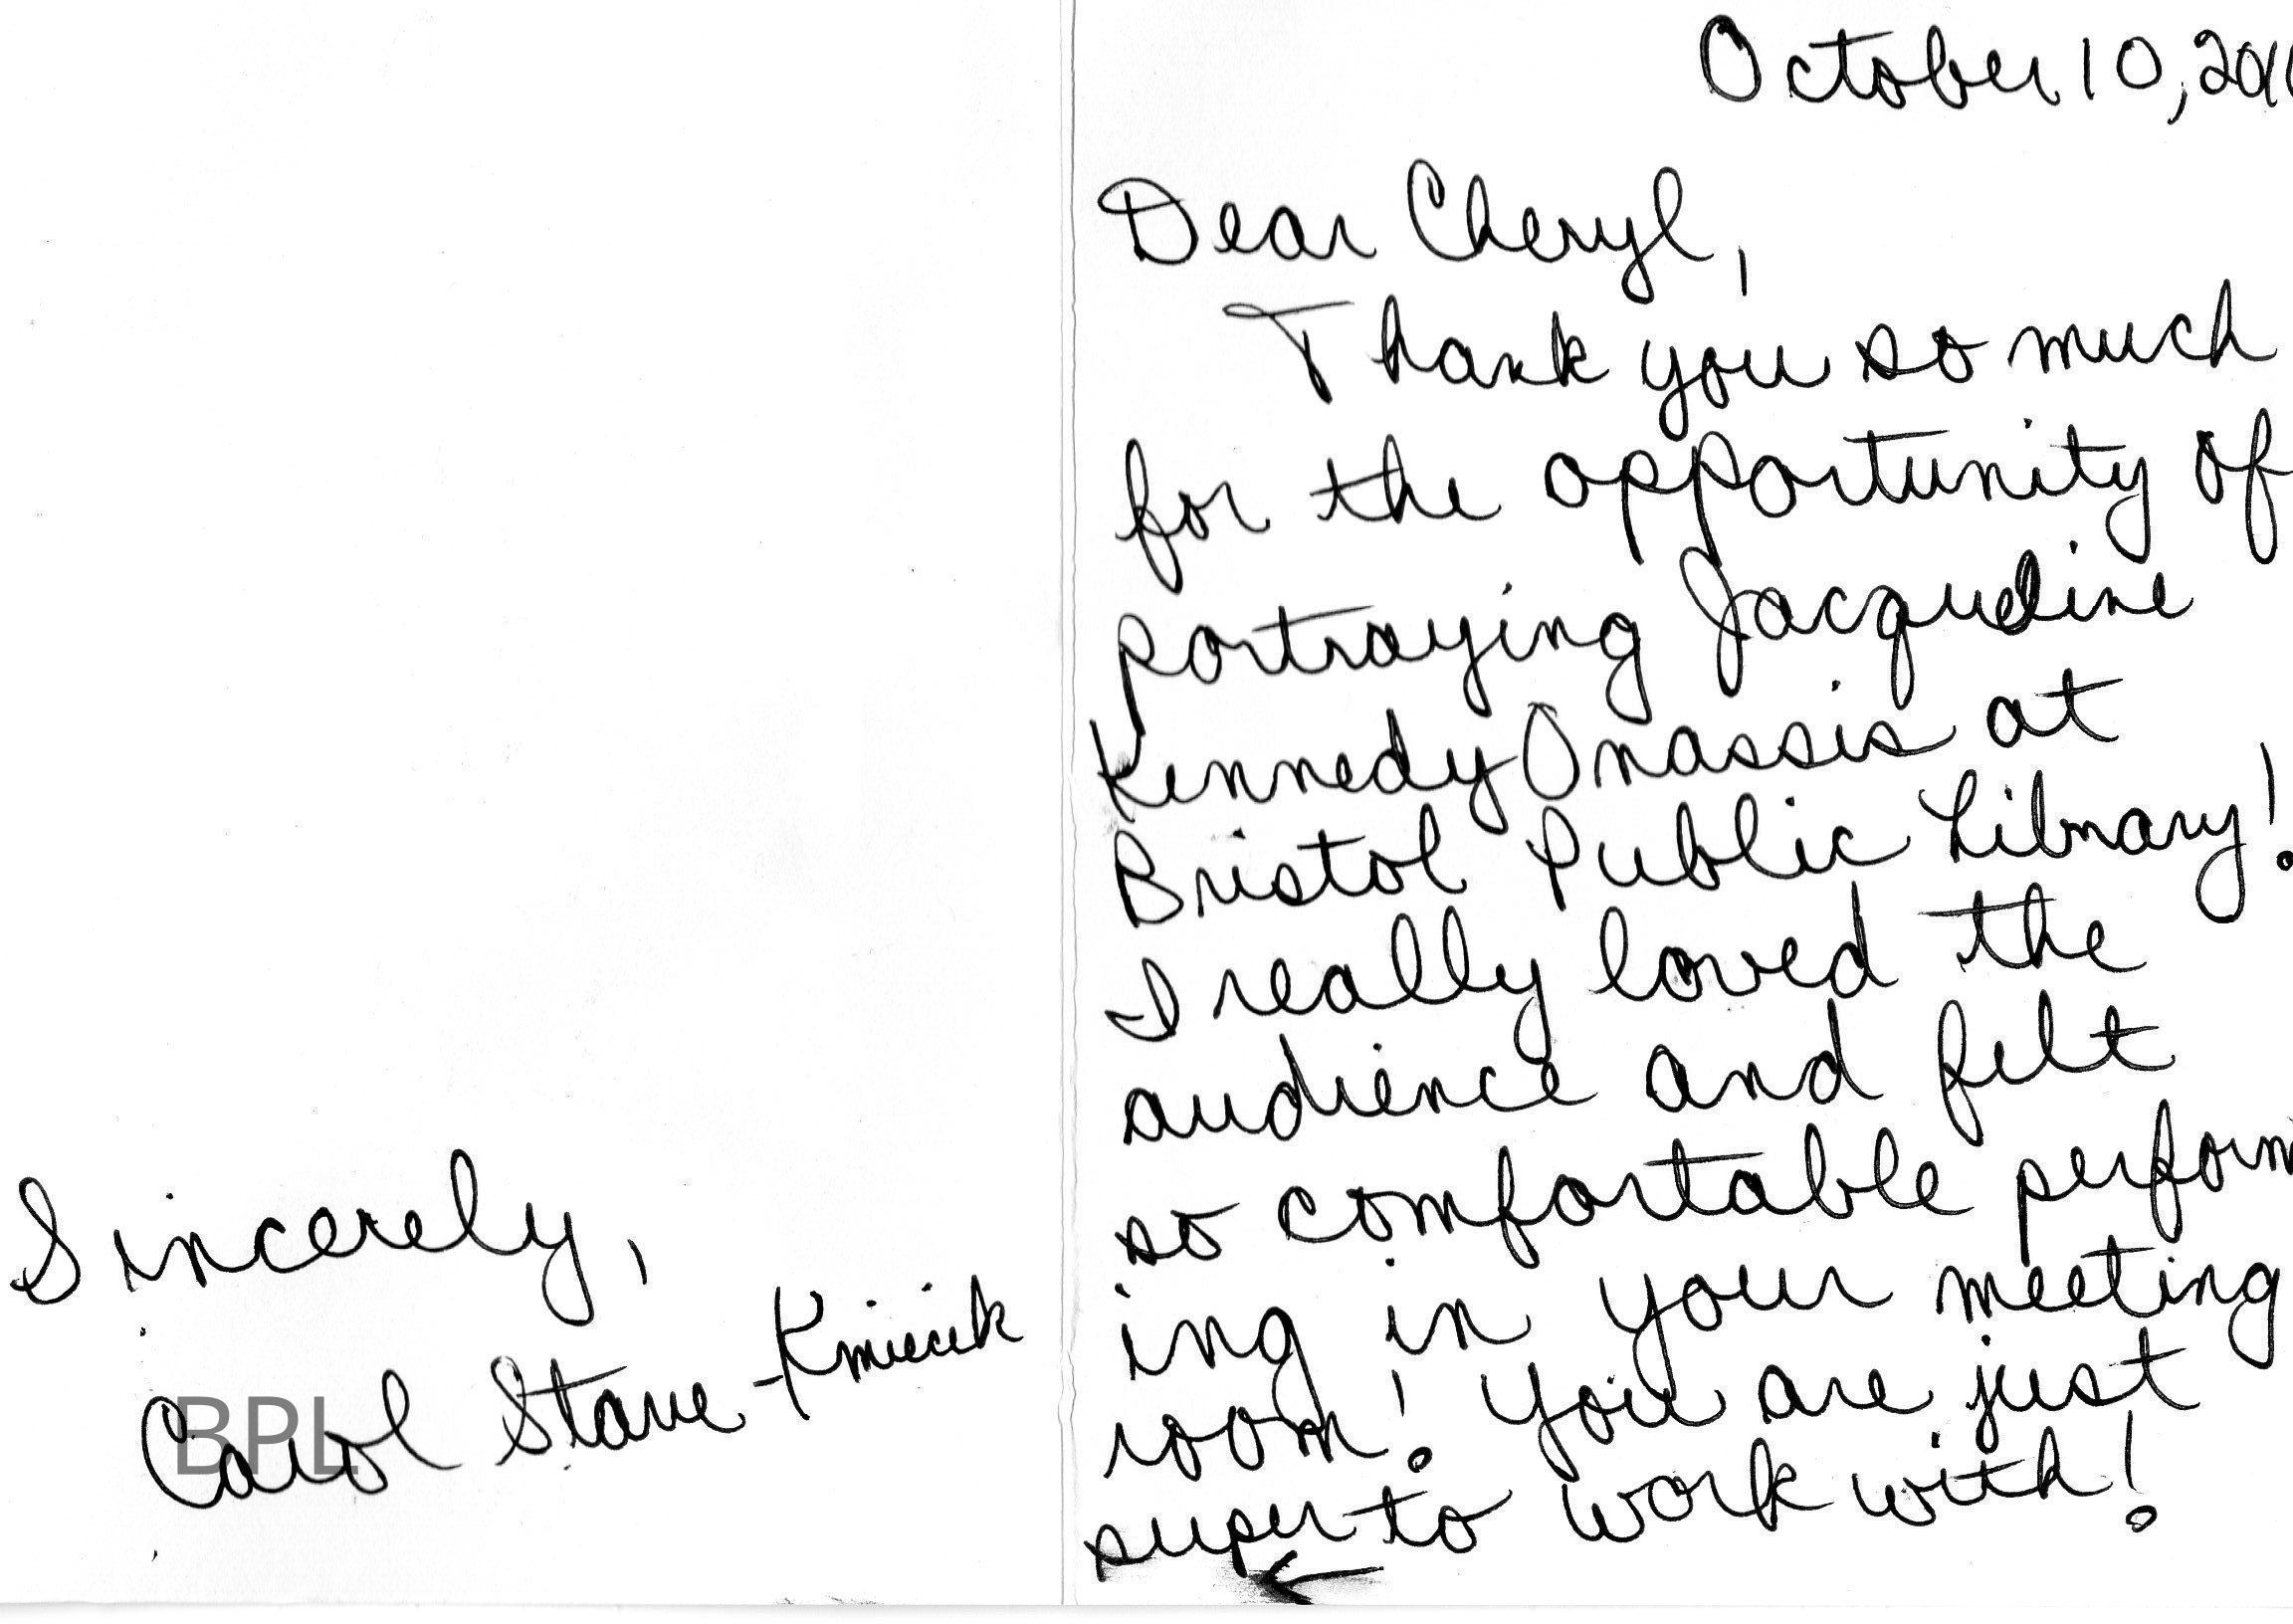 October 10, 2011
Dear Cheryl,
Thank you so much
for the opportunity of
portraying Jacqueline
Kennedy Onassis at
Bristol Public Library!
I really loved the
audience and felt
so comfortable perform
ing in your meeting
room! You are just
super to work with!
←
Sincerely,
Carol Starre-Kmiecik
BPL